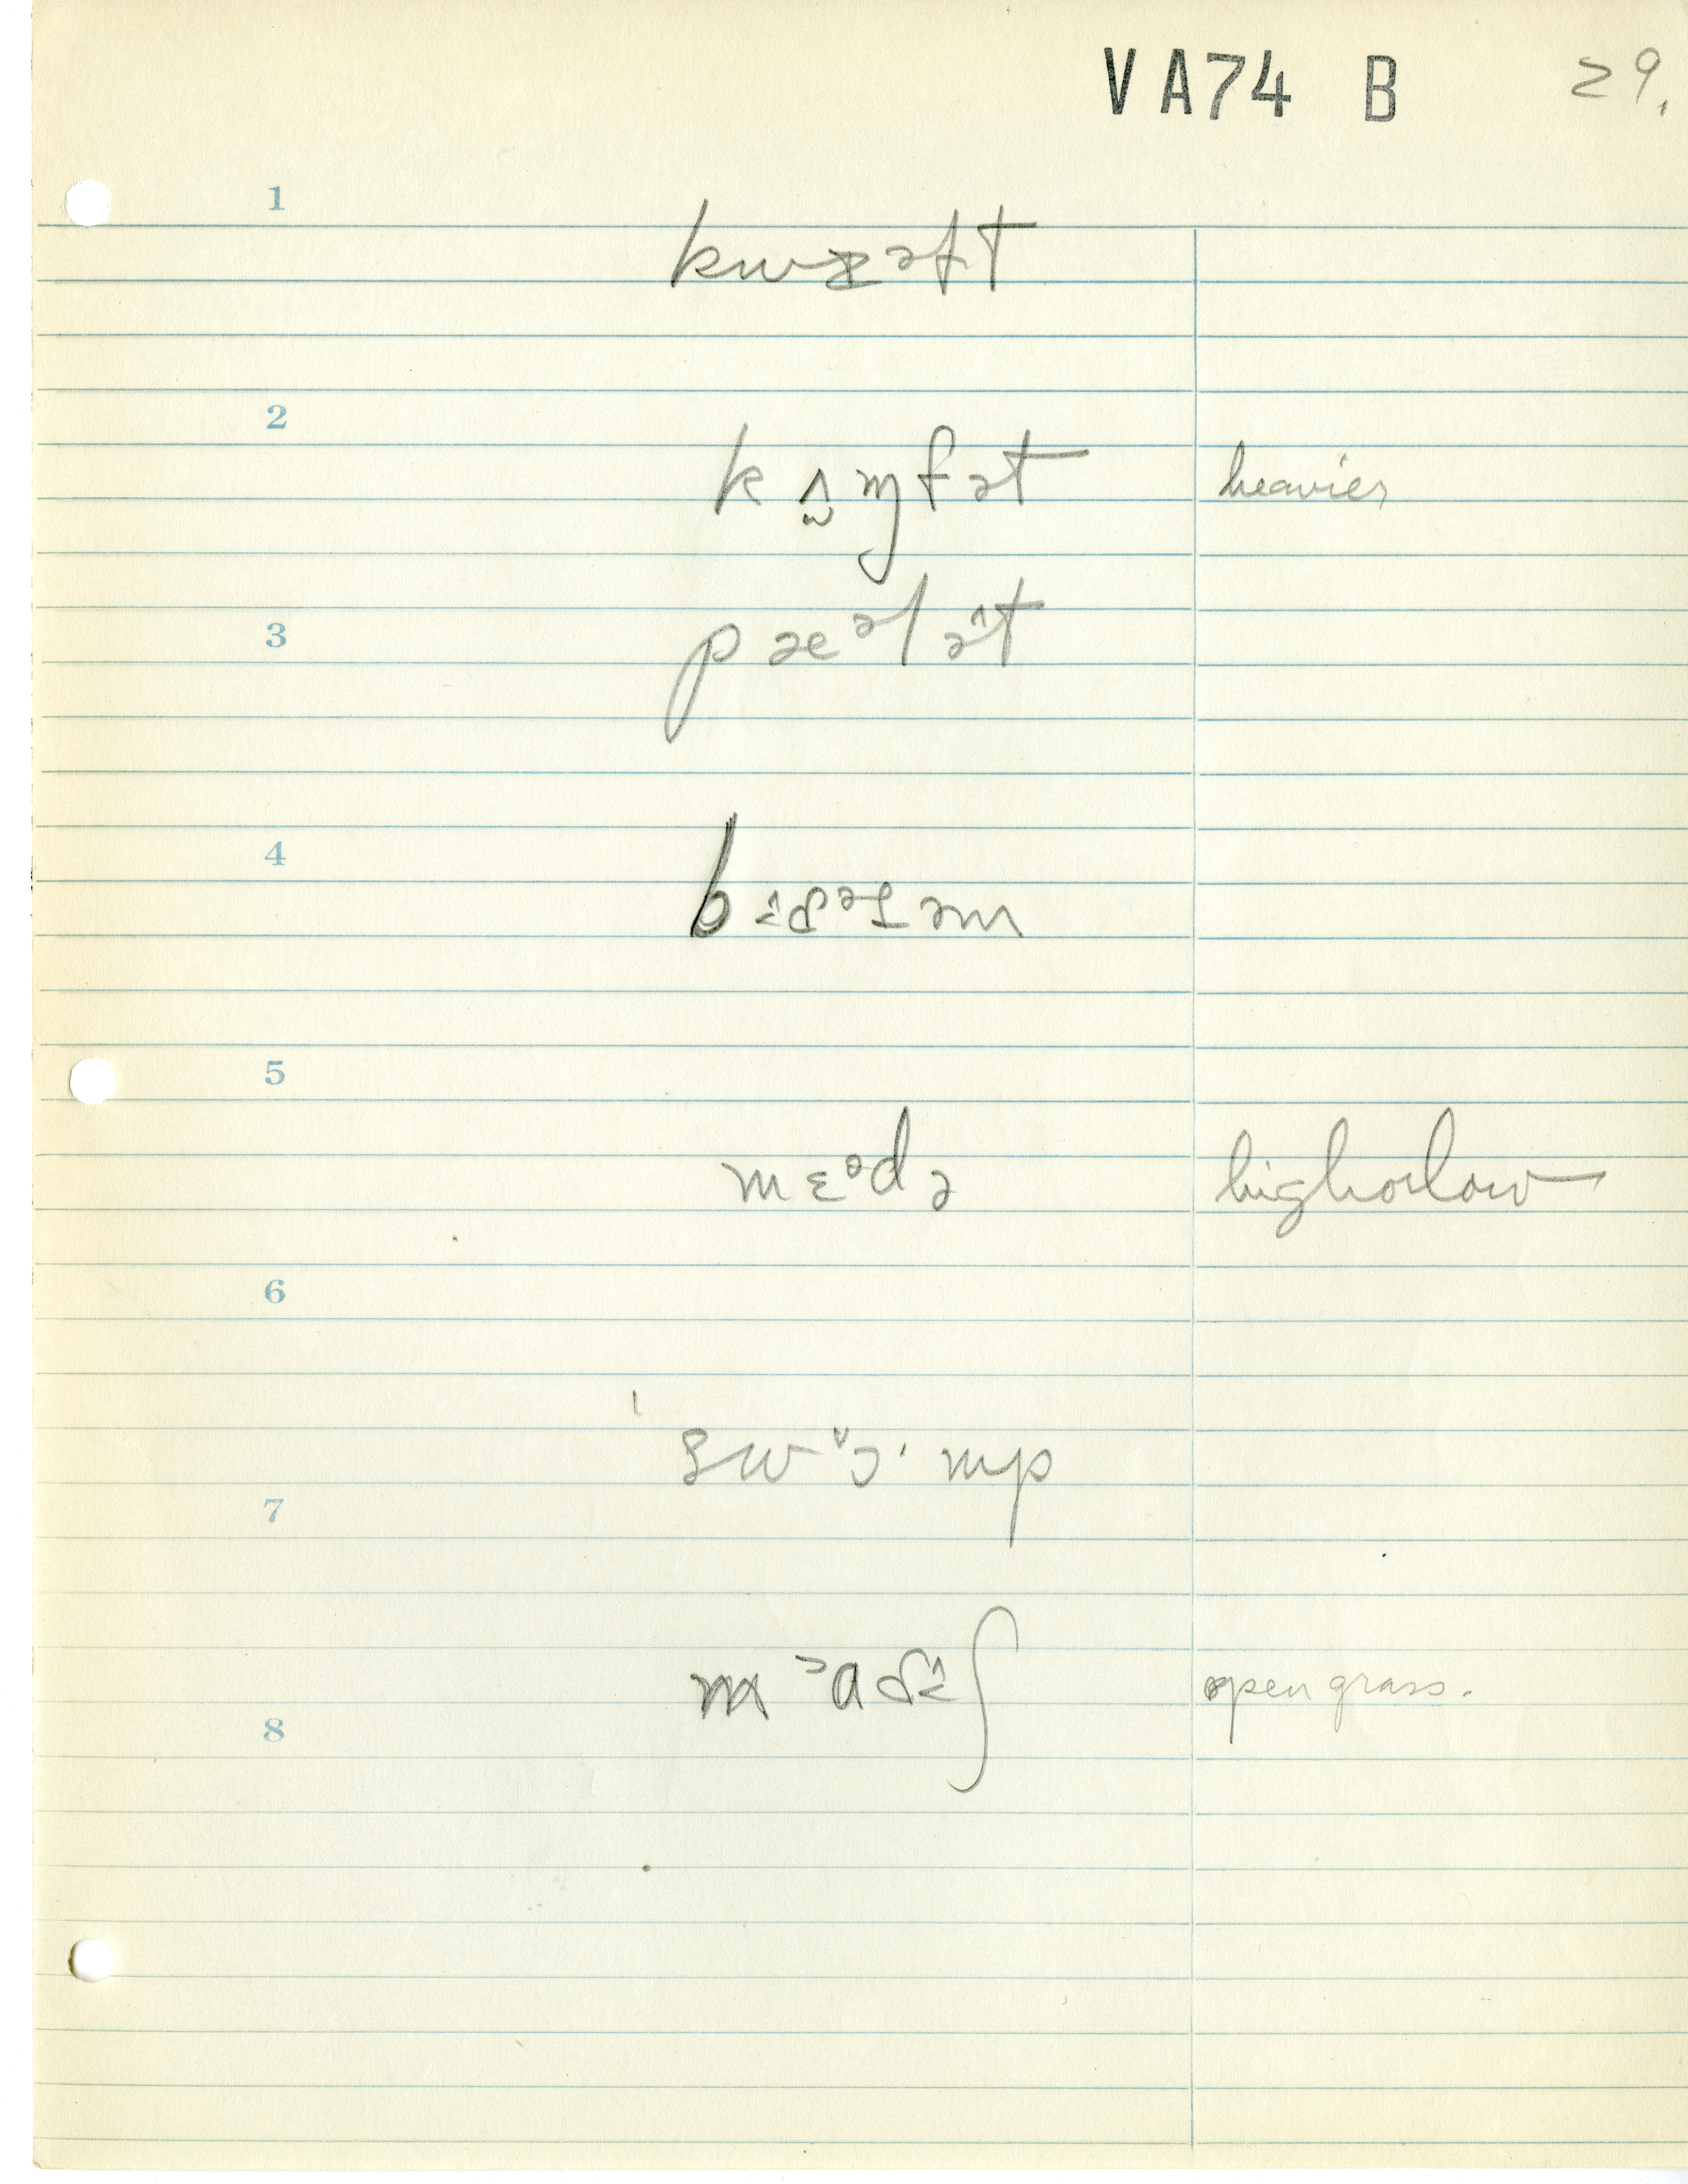 VA74 B 29.
1
kwɪəɫt
2
k ʌ̭̂ ɱfət heavier
3
pæᵊlə̂t
4
bɪ̂zᵊəm
5
mɛᵊdə high or low
6
ˈswɔ̌· mp
7
mᵊaɚɪ̂ʃ open grass.
8